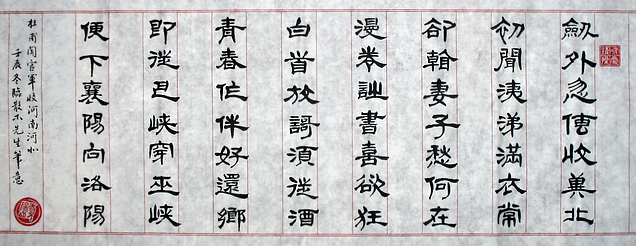 劒外忽傳收冀北
初聞洟涕滿衣常
卻看妻子愁何在
漫卷詩書喜欲狂
白首放謌須從酒
青春作伴好還鄉
即從巴峽穿巫峽
便下襄陽向洛陽
杜甫聞官軍收河南河北
壬辰冬臨散木先生筆意